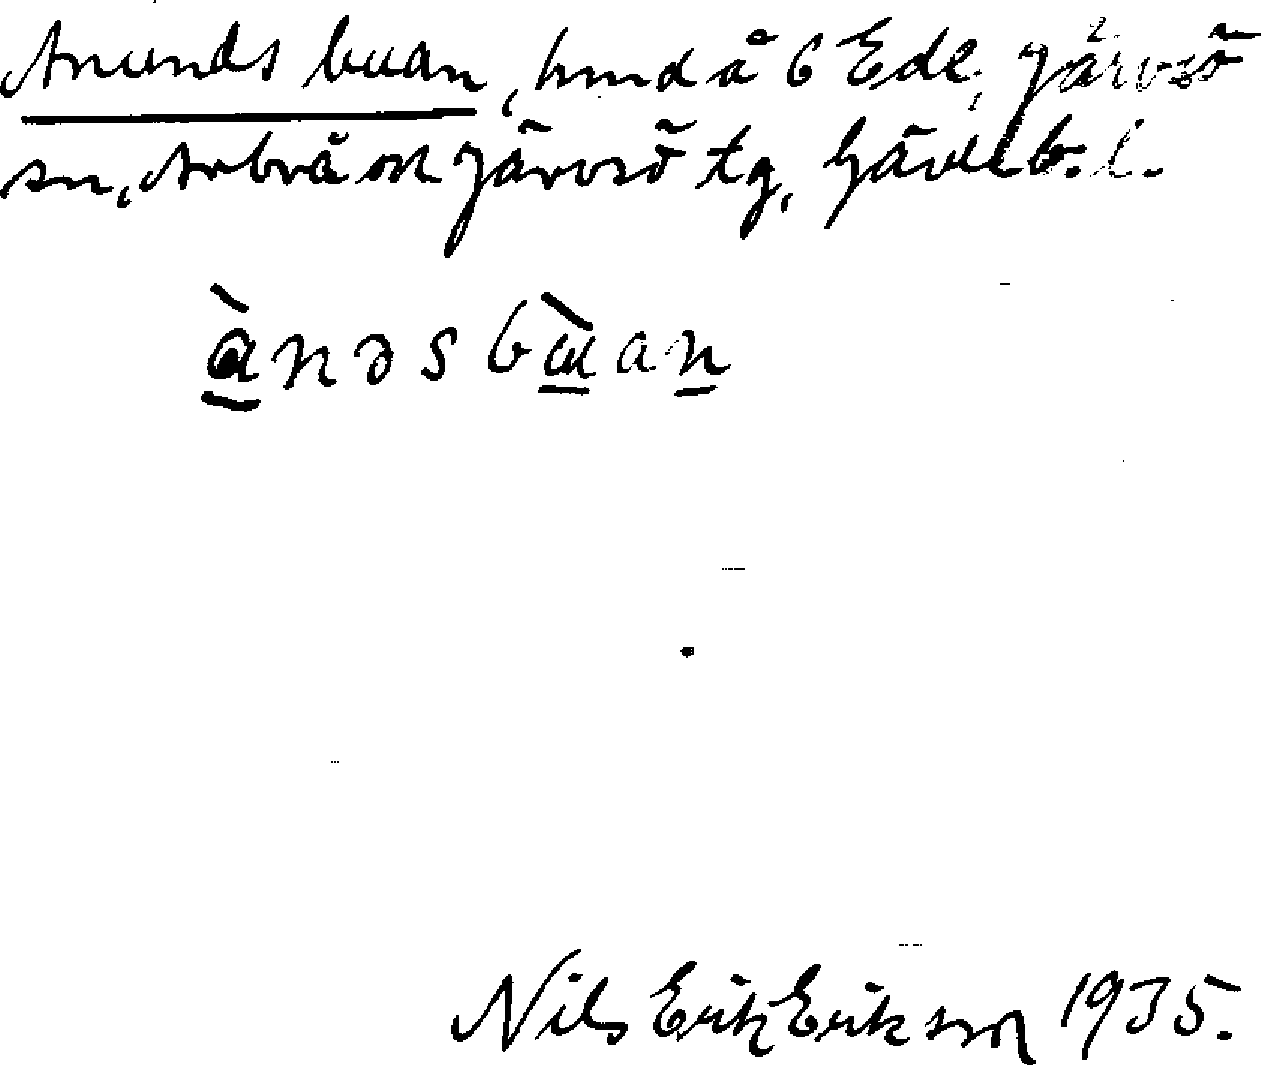 Anunds buan, hmd å 6 Ede, Järvsö
sn, Arbrå och Järvsö tg, Gävleb. l.
ànəsbùan
Nils Erik Eriksson 1935.